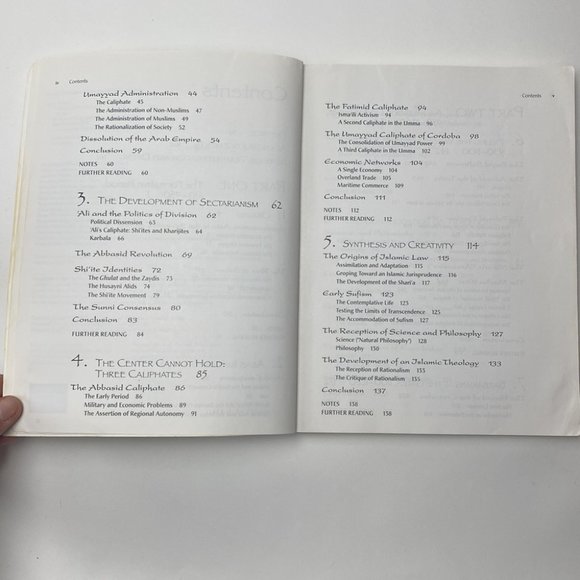 iv Contents
Umayyad Administration 44
The Caliphate 45
The Administration of Non-Muslims 47
The Administration of Muslims 49
The Rationalization of Society 52
Dissolution of the Arab Empire 54
Conclusion 59
NOTES 60
FURTHER READING 60
3. THE DEVELOPMENT OF SECTARIANISM 62
'Ali and the Politics of Division 62
Political Dissension 63
'Ali's Caliphate: Shi'ites and Kharijites 64
Karbala 66
The Abbasid Revolution 69
Shi'ite Identities 72
The Ghulat and the Zaydis 73
The Husayni Alids 74
The Shi'ite Movement 79
The Sunni Consensus 80
Conclusion 83
FURTHER READING 84
4. THE CENTER CANNOT HOLD:
THREE CALIPHATES 85
The Abbasid Caliphate 86
The Early Period 86
Military and Economic Problems 89
The Assertion of Regional Autonomy 91
Contents v
The Fatimid Caliphate 94
Isma'ili Activism 94
A Second Caliphate in the Umma 96
The Umayyad Caliphate of Cordoba 98
The Consolidation of Umayyad Power 99
A Third Caliphate in the Umma 102
Economic Networks 104
A Single Economy 104
Overland Trade 105
Maritime Commerce 109
Conclusion 111
NOTES 112
FURTHER READING 112
5. SYNTHESIS AND CREATIVITY 114
The Origins of Islamic Law 115
Assimilation and Adaptation 115
Groping Toward an Islamic Jurisprudence 116
The Development of the Shari'a 117
Early Sufism 123
The Contemplative Life 123
Testing the Limits of Transcendence 125
The Accommodation of Sufism 127
The Reception of Science and Philosophy 127
Science ("Natural Philosophy") 128
Philosophy 130
The Development of an Islamic Theology 133
The Reception of Rationalism 133
The Critique of Rationalism 135
Conclusion 137
NOTES 138
FURTHER READING 138